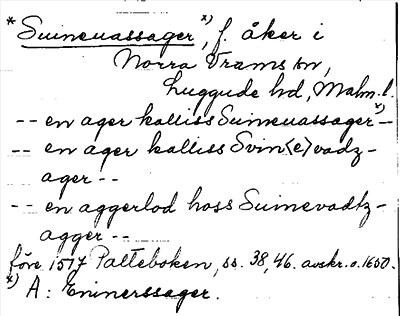 *Suineuassager*), f. åker i
Norra Vrams sn,
Luggude hd, Malm. l.
-- en ager kalliss Suineuassager*)--
-- en ager kalliss Svin(e)vadz-
ager --
-- en aggerlod hoss Suinevadtz-
agger --
före 1517 Palteboken, ss. 38, 46. avskr. o. 1600.
*) A: Eninerssager.